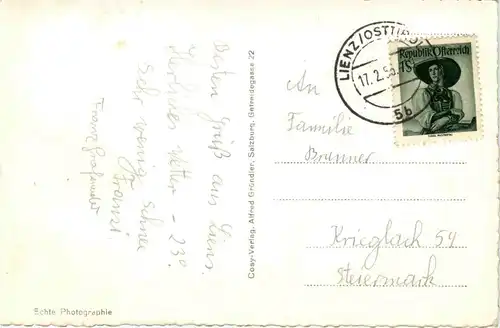 Besten Gruß aus Lienz.
Herrliches Wetter - 23°
Sehr wenig Schnee
Franzi
Franz
LIENZ/OSTTIROL
17.2.56
5b
Republik Österreich
1S
An
Familie
Brunner
Krieglach 54
Steiermark
Cosy-Verlag, Alfred Gründler, Salzburg, Getreidegasse 22
Echte Photographie